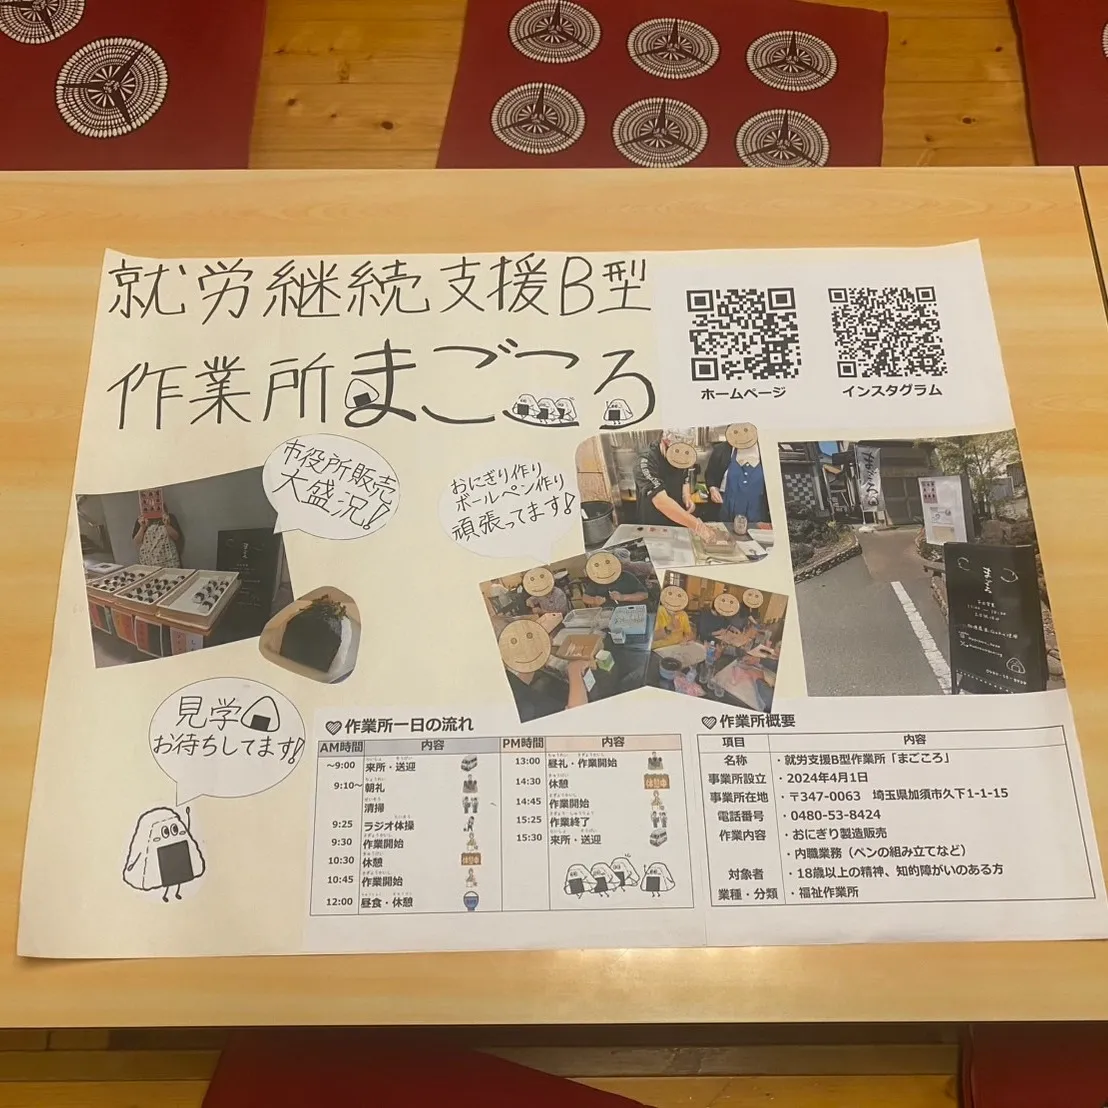 就労継続支援B型
作業所まごころ
ホームページ
インスタグラム
市役所販売
大盛況!
おにぎり作り
ボールペン作り
頑張ってます!
まごころ
まごころ
見学
お待ちしてます!
作業所一日の流れ
AM時間 内容
～9:00 来所・送迎
9:10～ 朝礼
清掃
9:25 ラジオ体操
9:30 作業開始
10:30 休憩
10:45 作業開始
12:00 昼食・休憩
PM時間 内容
13:00 昼礼・作業開始
14:30 休憩
14:45 作業開始
15:25 作業終了
15:30 来所・送迎
作業所概要
項目 内容
名称 ・就労支援B型作業所「まごころ」
事業所設立 ・2024年4月1日
事業所在地 ・〒347-0063 埼玉県加須市久下1-1-15
電話番号 ・0480-53-8424
作業内容 ・おにぎり製造販売
・内職業務（ペンの組み立てなど）
対象者 ・18歳以上の精神、知的障がいのある方
業種・分類 ・福祉作業所